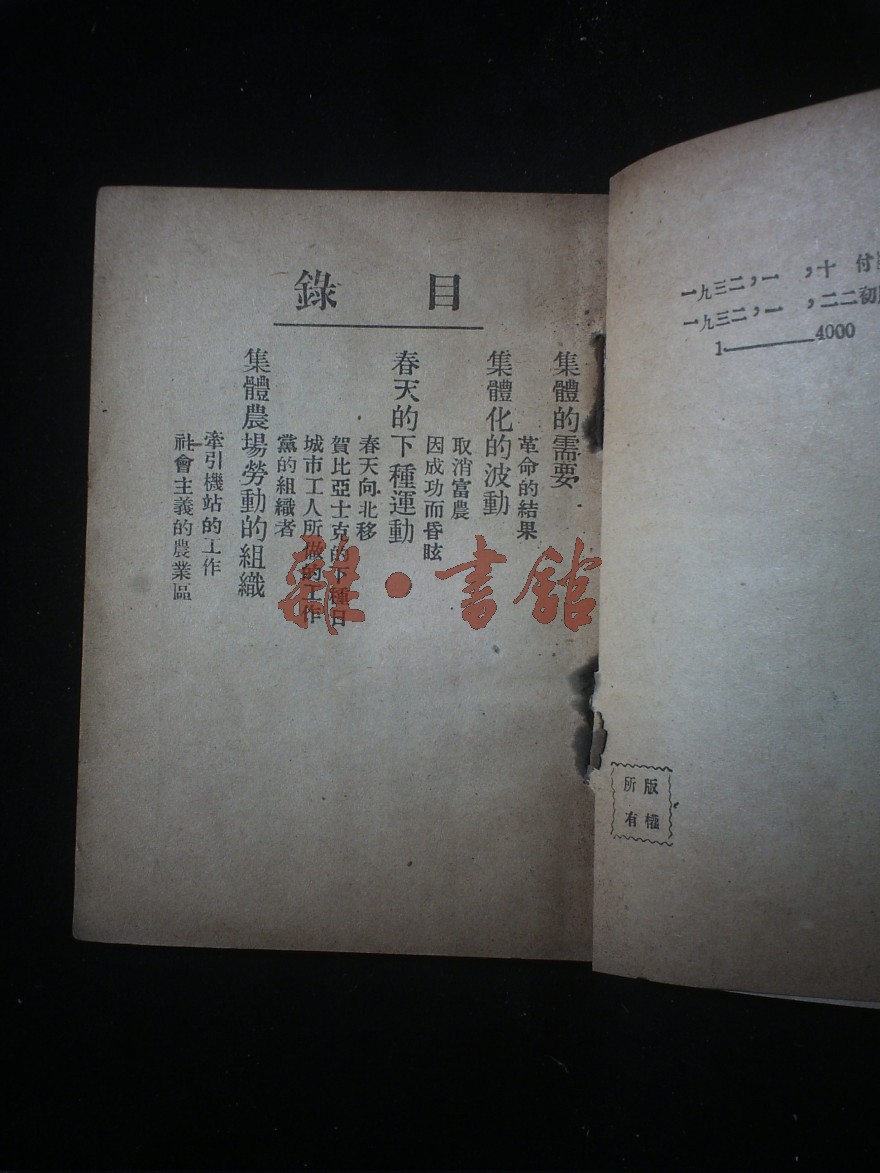 一九三二，一　，十　付
一九三二，一　，二二初
1————4000
版權
所有
目錄
集體的需要
革命的結果
集體化的波動
取消富農
因成功而昏眩
春天的下種運動
春天向北移
賀比亞士克的下種日
城市工人所做的工作
黨的組織者
集體農場勞動的組織
牽引機站的工作
社會主義的農業區
雜·書館